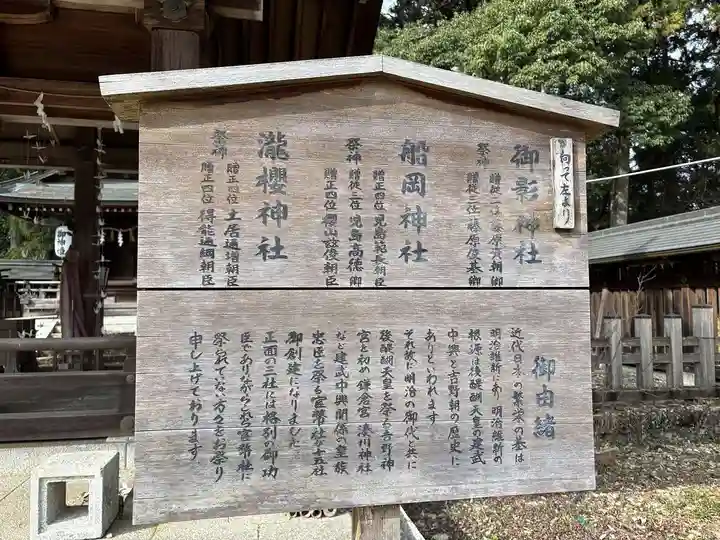 向って左より
御影神社
祭神
贈従二位 藤原資朝卿
贈従三位 藤原俊基卿
船岡神社
祭神
贈正四位 児島範長朝臣
贈従三位 児島高徳卿
贈正四位 桜山玆俊朝臣
瀧櫻神社
祭神
贈正四位 土居通増朝臣
贈正四位 得能通綱朝臣
御由緒
近代日本の繁栄の基は
明治維新にあり 明治維新の
根源は後醍醐天皇の建武
中興と吉野朝の歴史に
ありといわれます。
それ故に明治の御代と共に
後醍醐天皇を祭る吉野神
宮を初め鎌倉宮 湊川神社
など建武中興関係の皇族
忠臣を祭る官幣社十五社
御創建になりました
正面の三社には格別の御功
臣でありながらこれら官幣社に
祭られていない方々をお祭り
申し上げております。